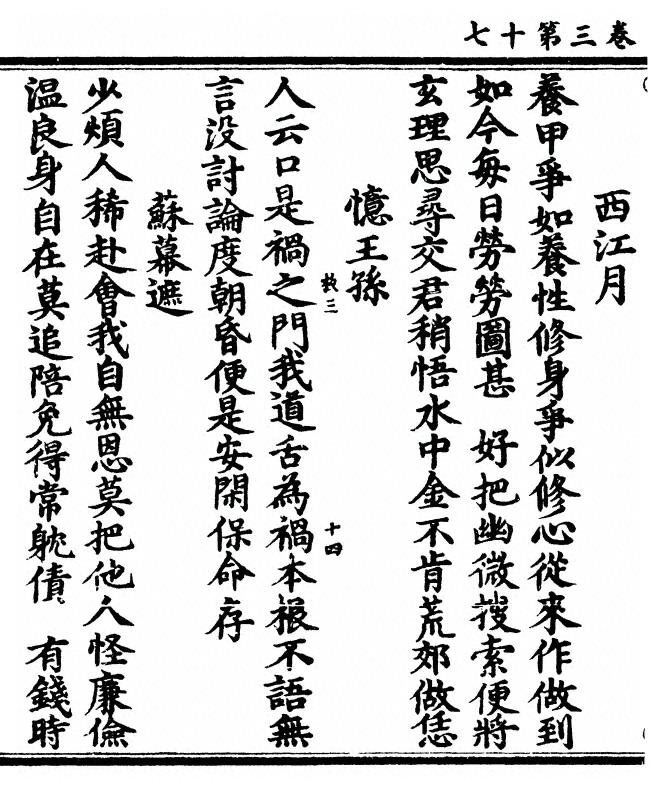 卷三第十七
西江月
養甲爭如養性修身爭似修心從來作做到
如今每日勞勞圖甚　好把幽微搜索便將
玄理思尋交君稍悟水中金不肯荒郊做恁
憶王孫
人云口是禍之門我道舌為禍本根不語無
言没討論度朝昏便是安閑保命存
蘇幕遮
少煩人稀赴會我自無恩莫把他人怪廉儉
温良身自在莫追陪免得常躭債　有錢時
數三
十四